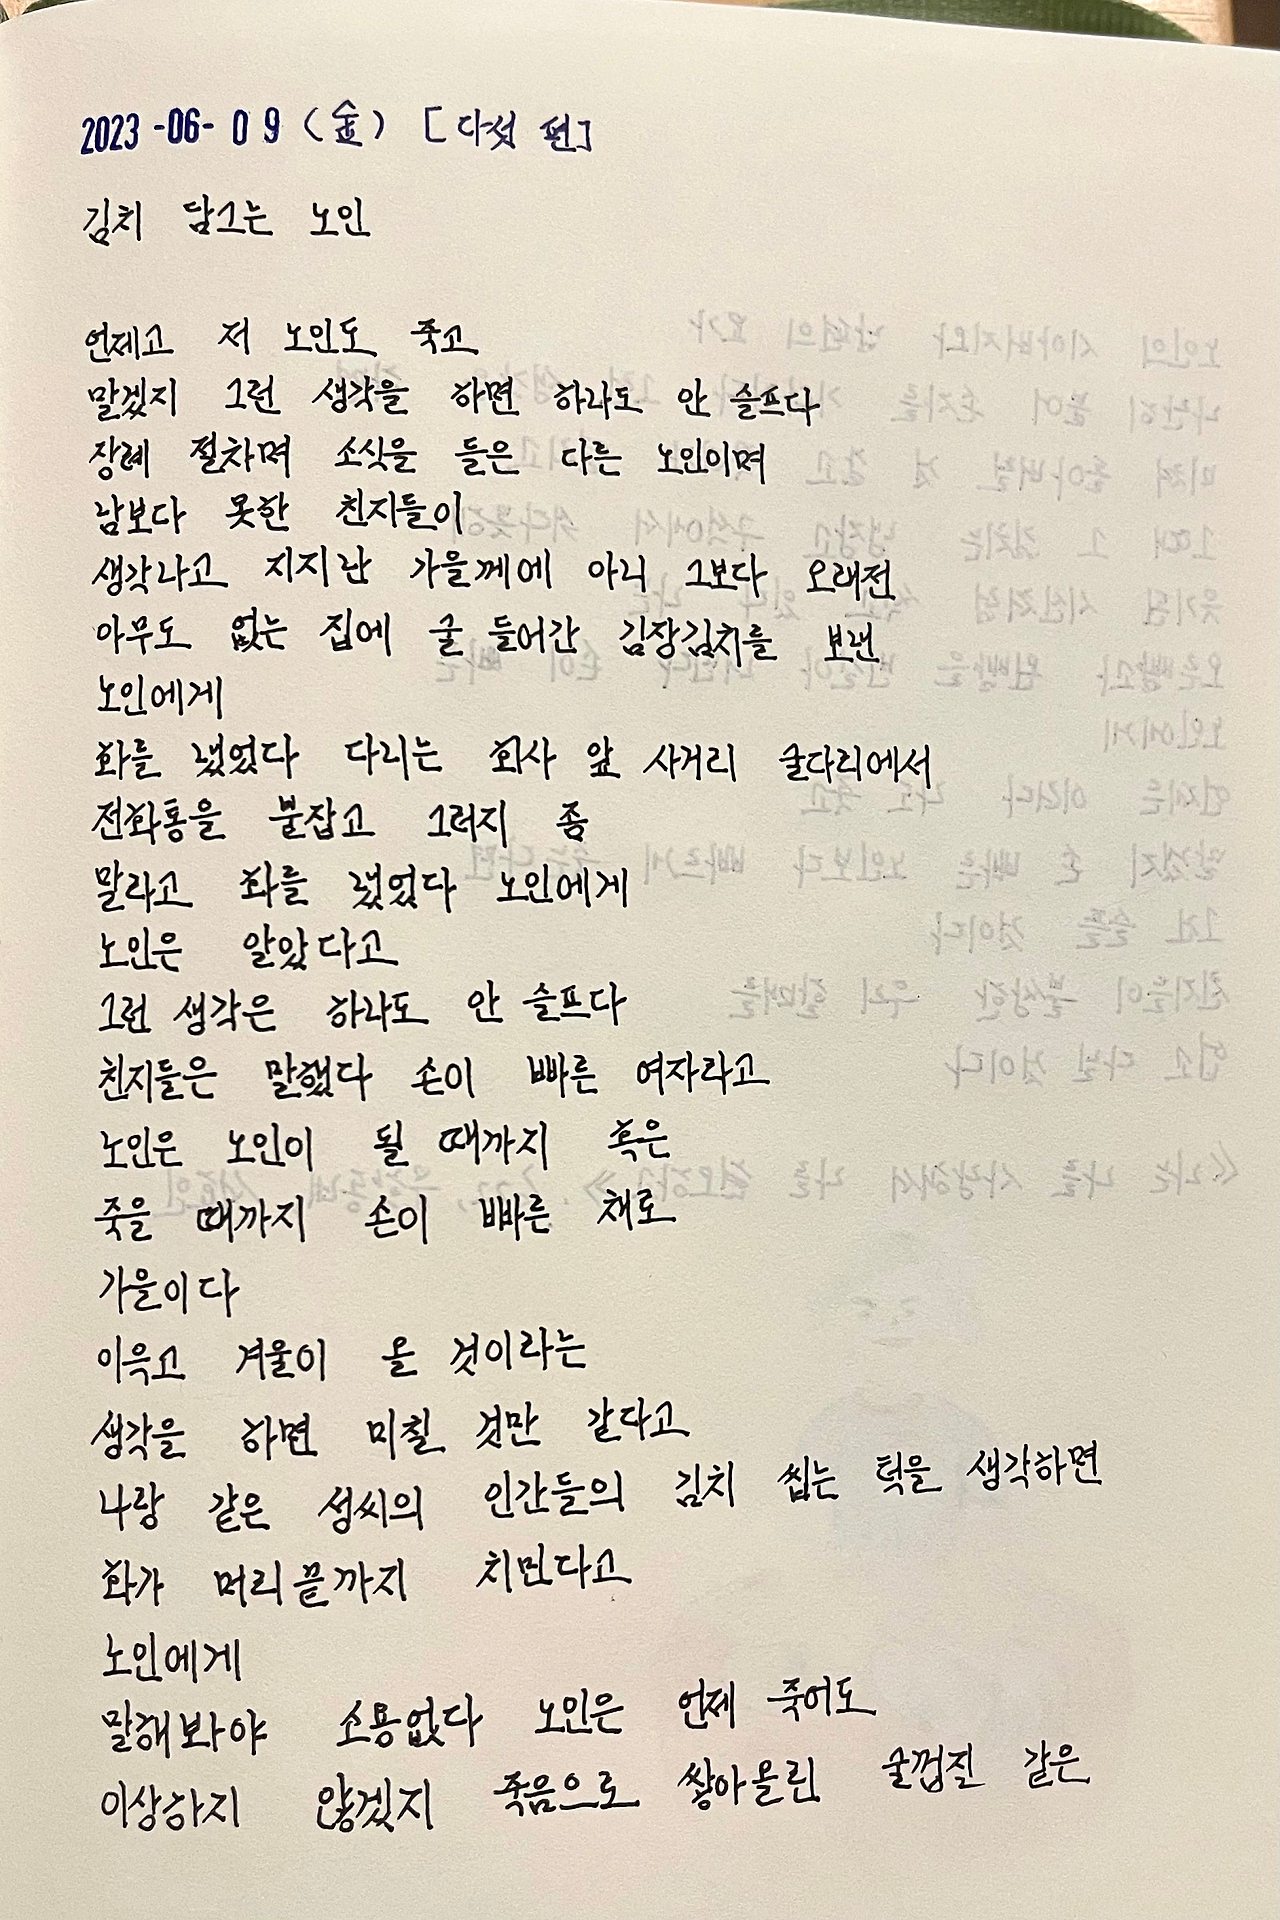 2023-06-09 (金) [다섯 편]
김치 담그는 노인
언제고 저 노인도 죽고
말겠지 그런 생각을 하면 하나도 안 슬프다
장례 절차며 소식을 들은 다른 노인이며
남보다 못한 친지들이
생각나고 지지난 가을께에 아니 그보다 오래전
아무도 없는 집에 굴 들어간 김장김치를 보낸
노인에게
화를 냈었다 다리는 회사 앞 사거리 굴다리에서
전화통을 붙잡고 그러지 좀
말라고 화를 냈었다 노인에게
노인은 알았다고
그런 생각은 하나도 안 슬프다
친지들은 말했다 손이 빠른 여자라고
노인은 노인이 될 때까지 혹은
죽을 때까지 손이 빠른 채로
가을이다
이윽고 겨울이 올 것이라는
생각을 하면 미칠 것만 같다고
나랑 같은 성씨의 인간들의 김치 씹는 턱을 생각하면
화가 머리끝까지 치민다고
노인에게
말해봐야 소용없다 노인은 언제 죽어도
이상하지 않겠지 죽음으로 쌓아올린 굴껍질 같은